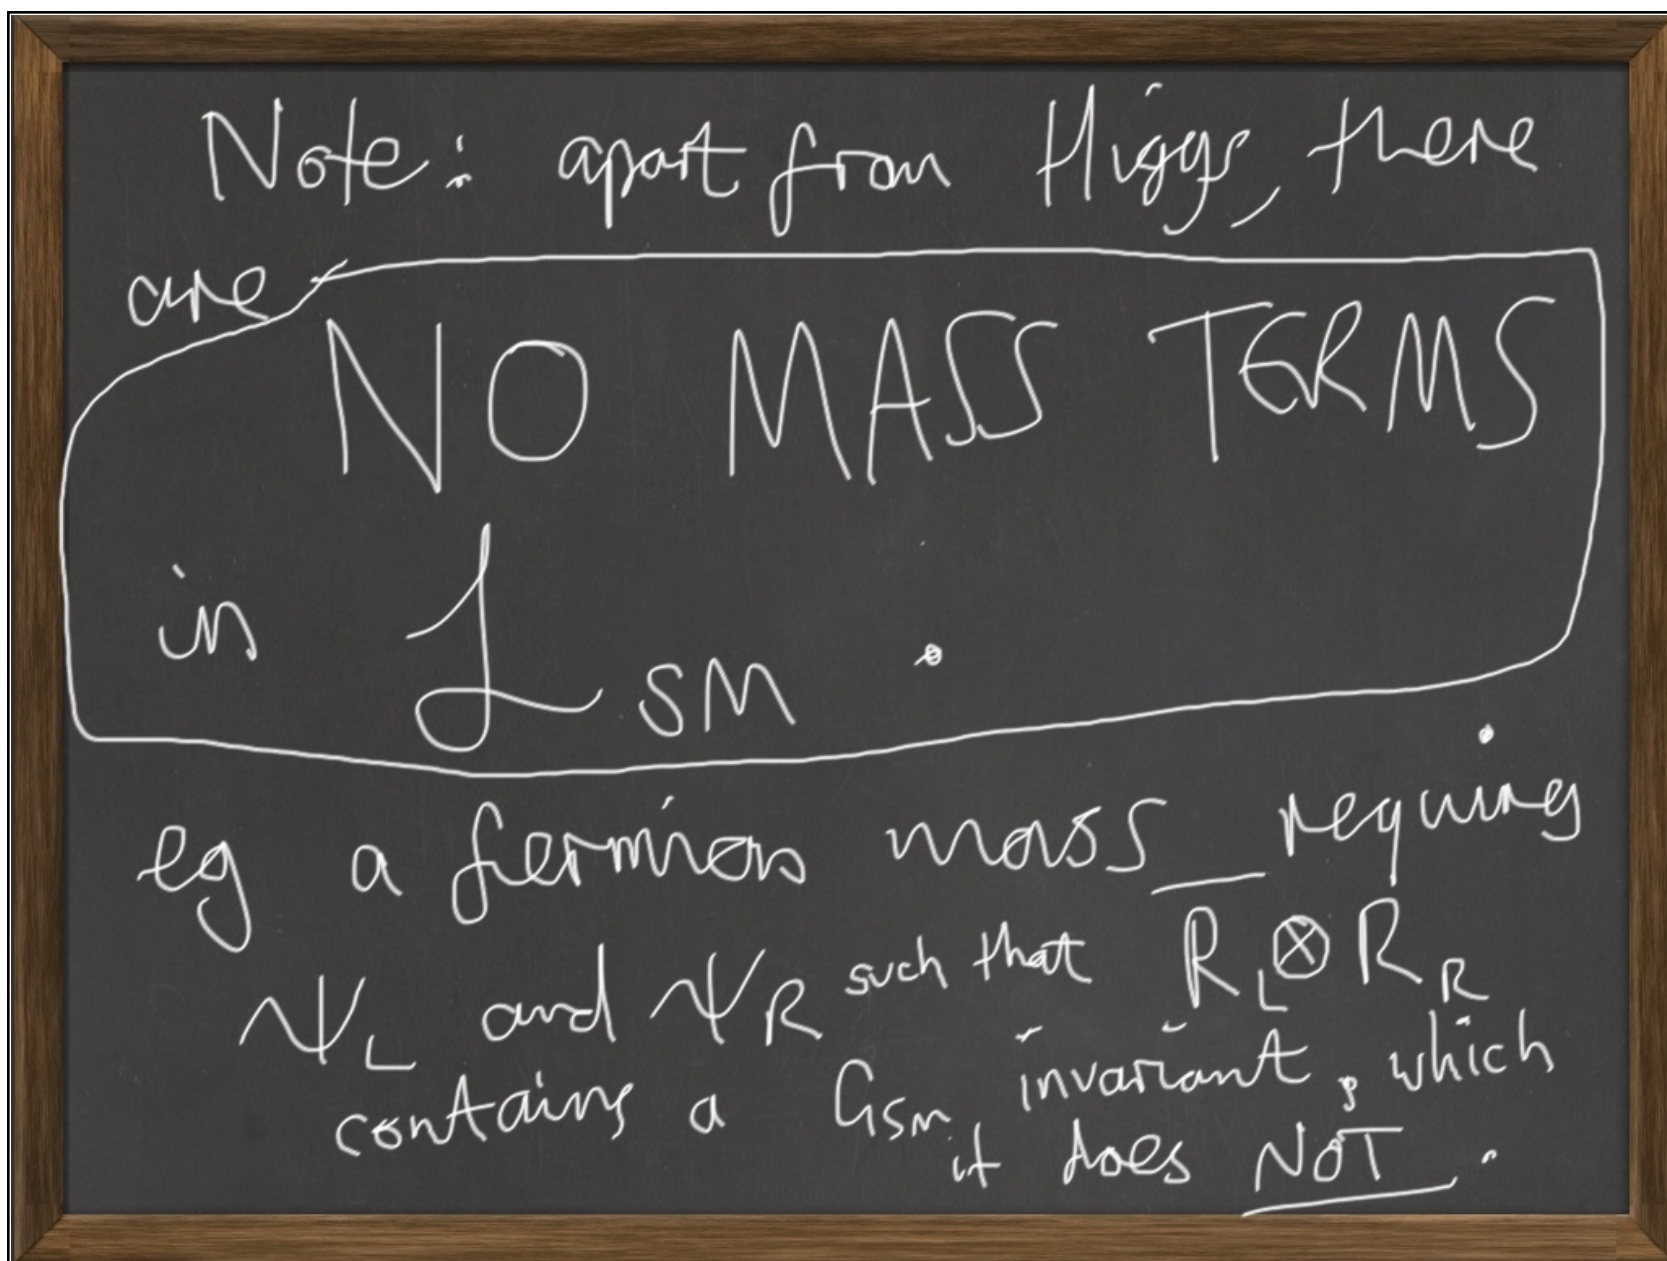 Note: apart from Higgs, there
are
NO MASS TERMS
in ℒ SM .
eg a fermion mass requires
ψL and ψR such that R̅L ⊗ RR
contains a GSM invariant, which
it does NOT.